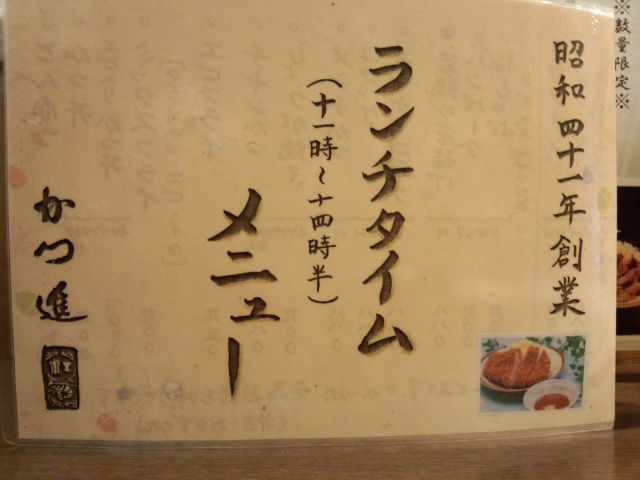 ※数量限定※
昭和四十一年創業
ランチタイム
（十一時～十四時半）
メニュー
かつ進